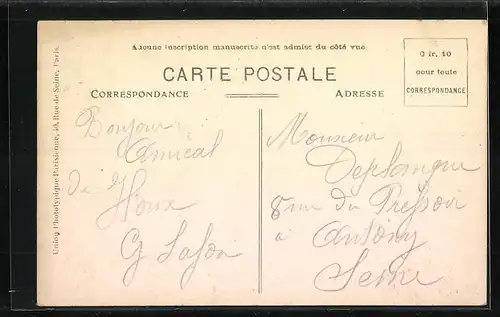 Aucune inscription manuscrite n'est admise du côté vue
CARTE POSTALE
CORRESPONDANCE
ADRESSE
0 fr. 10
pour toute
CORRESPONDANCE
Union Phototypique Parisienne, Rue de Seine, Paris.
Bonjour
Amical
de
G Lafon
Monsieur
rue du Pressoir
à Antony
Seine